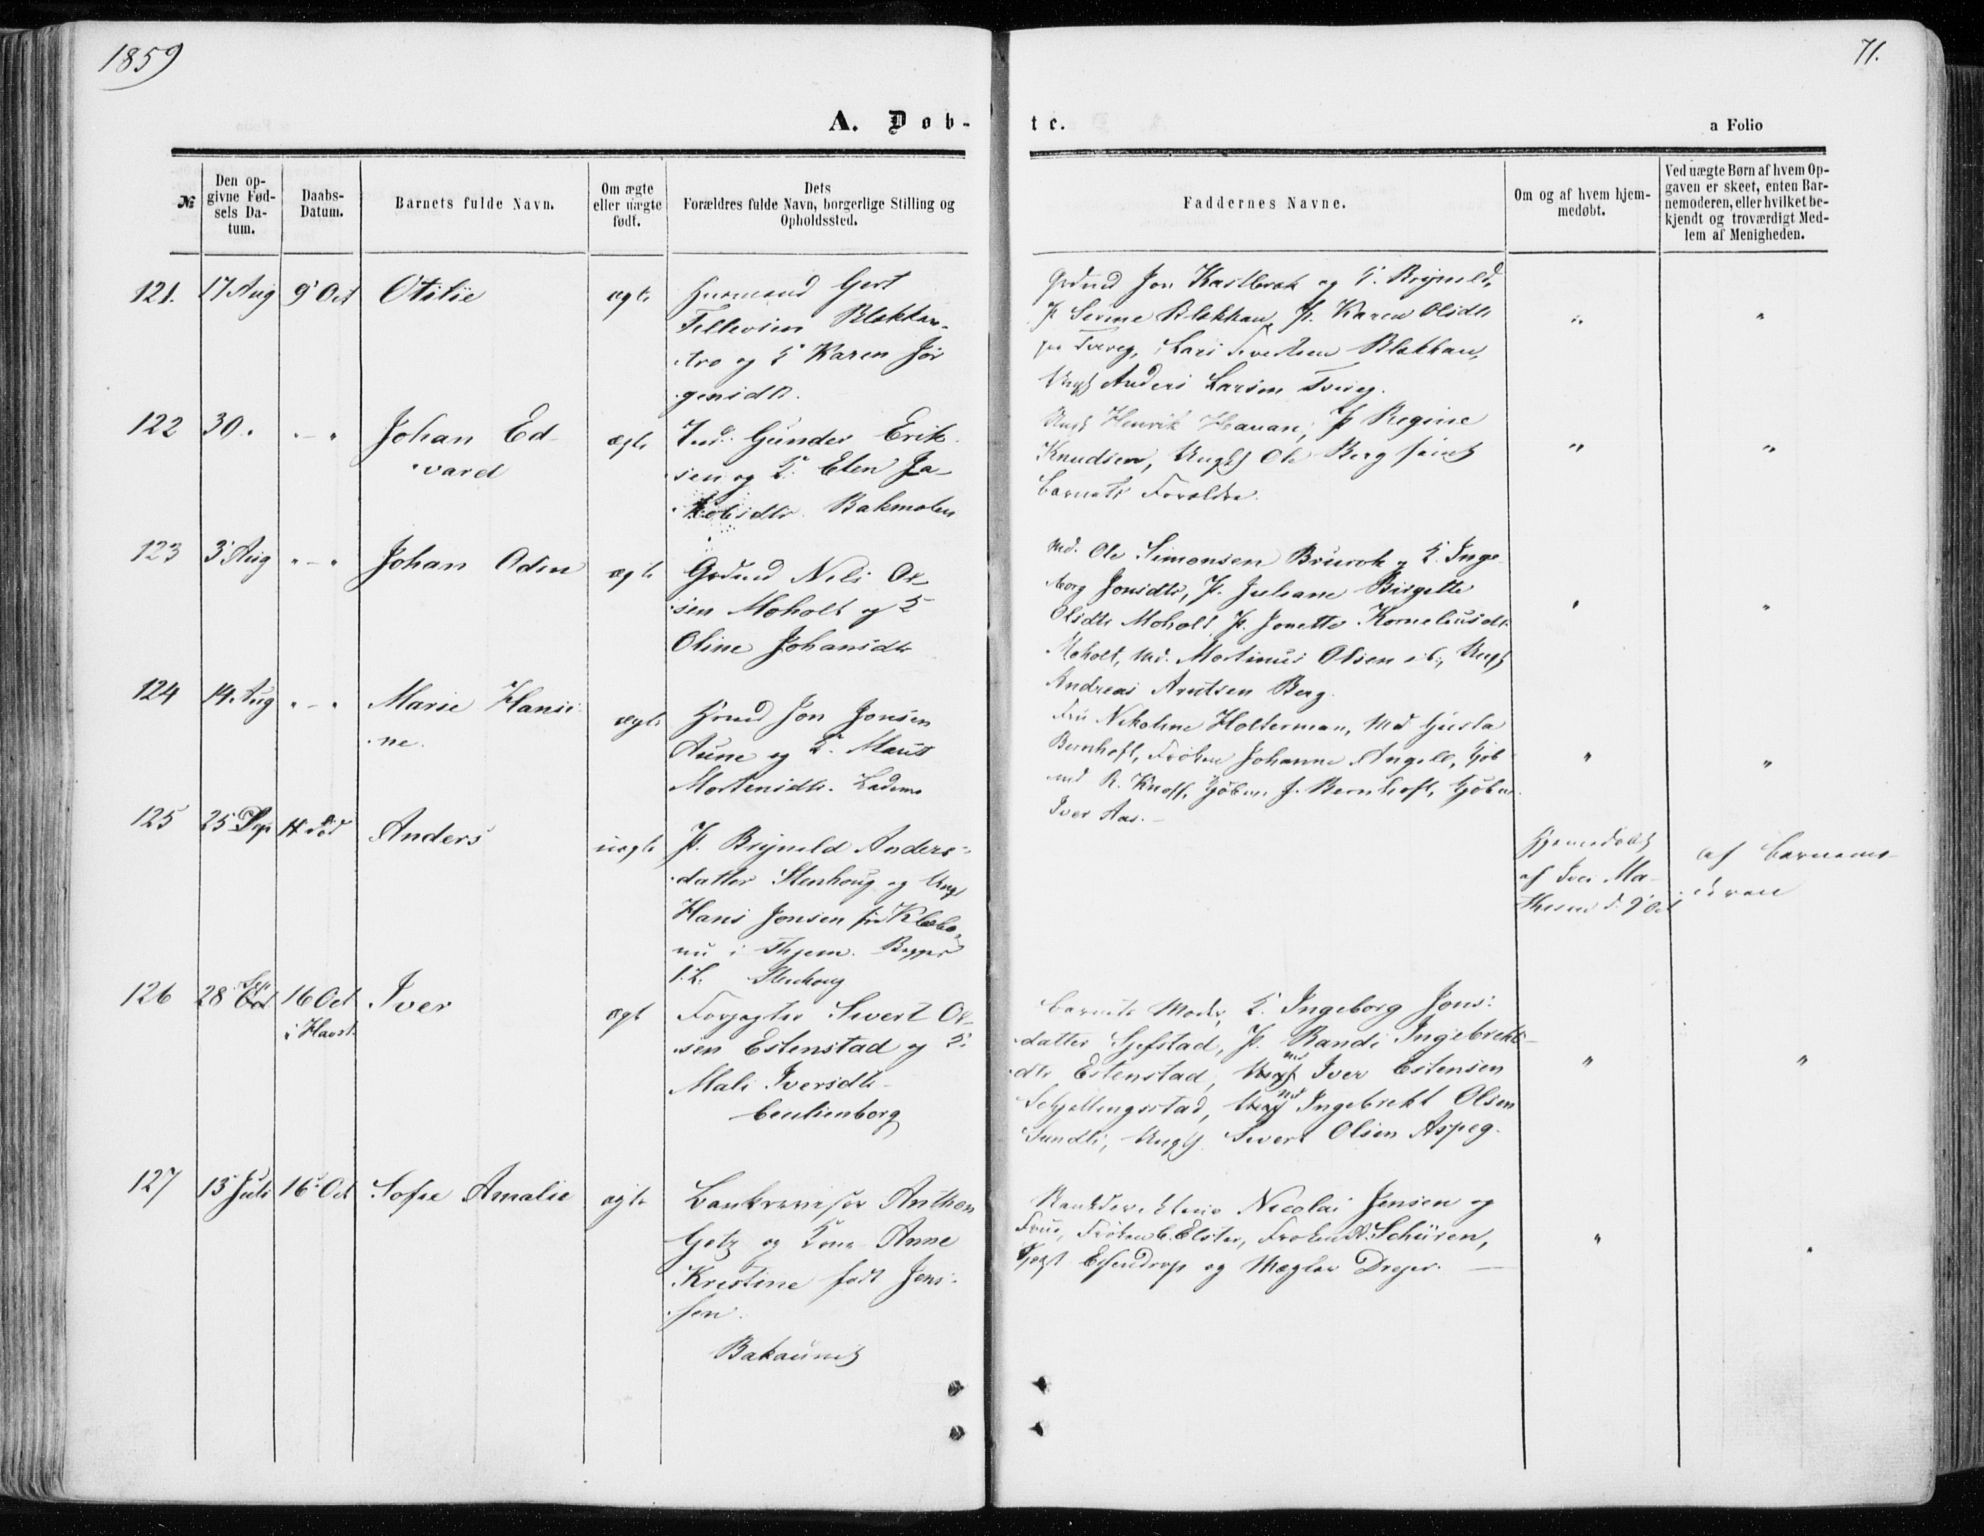 1859
71.
A. Døb-
te.
a Folio
№
Den op-
givne Fød-
sels Da-
tum.
Daabs-
Datum.
Barnets fulde Navn.
Om ægte
eller uægte
født.
Dets
Forældres fulde Navn, borgerlige Stilling og
Opholdssted.
Faddernes Navne.
Om og af hvem hjem-
medøbt.
Ved uægte Børn af hvem Op-
gaven er skeet, enten Bar-
nemoderen, eller hvilket be-
kjendt og troværdigt Med-
lem af Menigheden.
121.
17 Aug
9 Oct
Otilie
ægte
Huusmand Gert
Tellevsen Blakkan-
og K Karen Jør
gensdtr.
Jon og K. Brynild
P Serine Blakkan, P. Karen Olsdtr
Lars Blakkan,
Ungk Anders Larsen
"
"
122
30.
" - "
Johan Ed-
vard
ægte
Ind. Gunder Erik-
sen og K. Elen Ja-
kobsdtr. Bakmolen
Ungk Henrik Havan, P Regine
Knudsen, Ungk Ole Berg samt
barnets Forældre.
"
"
123
3 Aug
" - "
Johan Odin
ægte
Grdmd Nils Ol-
sen Moholt og K
Oline Johansdtr
Md. Ole Simonsen Brurok og K. Inge
borg Jonsdtr, P. Juliane Birgitte
Olsdtr Moholt P. Jonette Korneliusdtr
Moholt, Md. Martinus Olsen ib., Ungk
Andreas Arntsen Berg.
"
"
124
14 Aug
" - "
Marie Hansi-
ne.
ægte
Hmd Jon Jonsen
Aune og K. Marit
Mortensdtr. Lademo
Fru Nikoline Holterman, Md Gusta
Bernhoft, Frøken Johanne Angell, Kjøb
md R. Knoff, Kjøbm. J. Bernhoft, Kjøbm
Iver Aas.
"
"
125
25 Sep
Anders
uægte
P. Brynild Anders-
datter Stenhoug og Ung
Hans Jonsen fra Klæbo,
nu i Thjem.
Stenhoug
Hjemmedøbt
af Iver Ma-
thesen d. 9 Oct
af barnemo-
deren
126
28 Sep
16 Oct
i Havst.
Iver
ægt
Forpagter Sivert Ol-
sen Estenstad og K.
Mali Iversdtr
Ceciilienborg
barnets Moder, K. Ingeborg Jons-
datter Sjefstad, P. Randi Ingebrekt-
dtr Estenstad, Md Iver Estensen
Schjellingsstad, Md Ingebrekt Olsen
Sundli, Ungk Sivert Olsen Aspeg.
"
"
127
13 Juli
16 Oct
Sofie Amalie
ægte
Bankrevisor Anthon
Getz og Kone Anne
Kristine født Jens-
sen.
Bakaunet
Bankdirekteur Nicolai Jensen og
Frue, Frøken C. Elster, Frøken A. Schüren,
Esendrop og Mægler Dreyer.
"
"